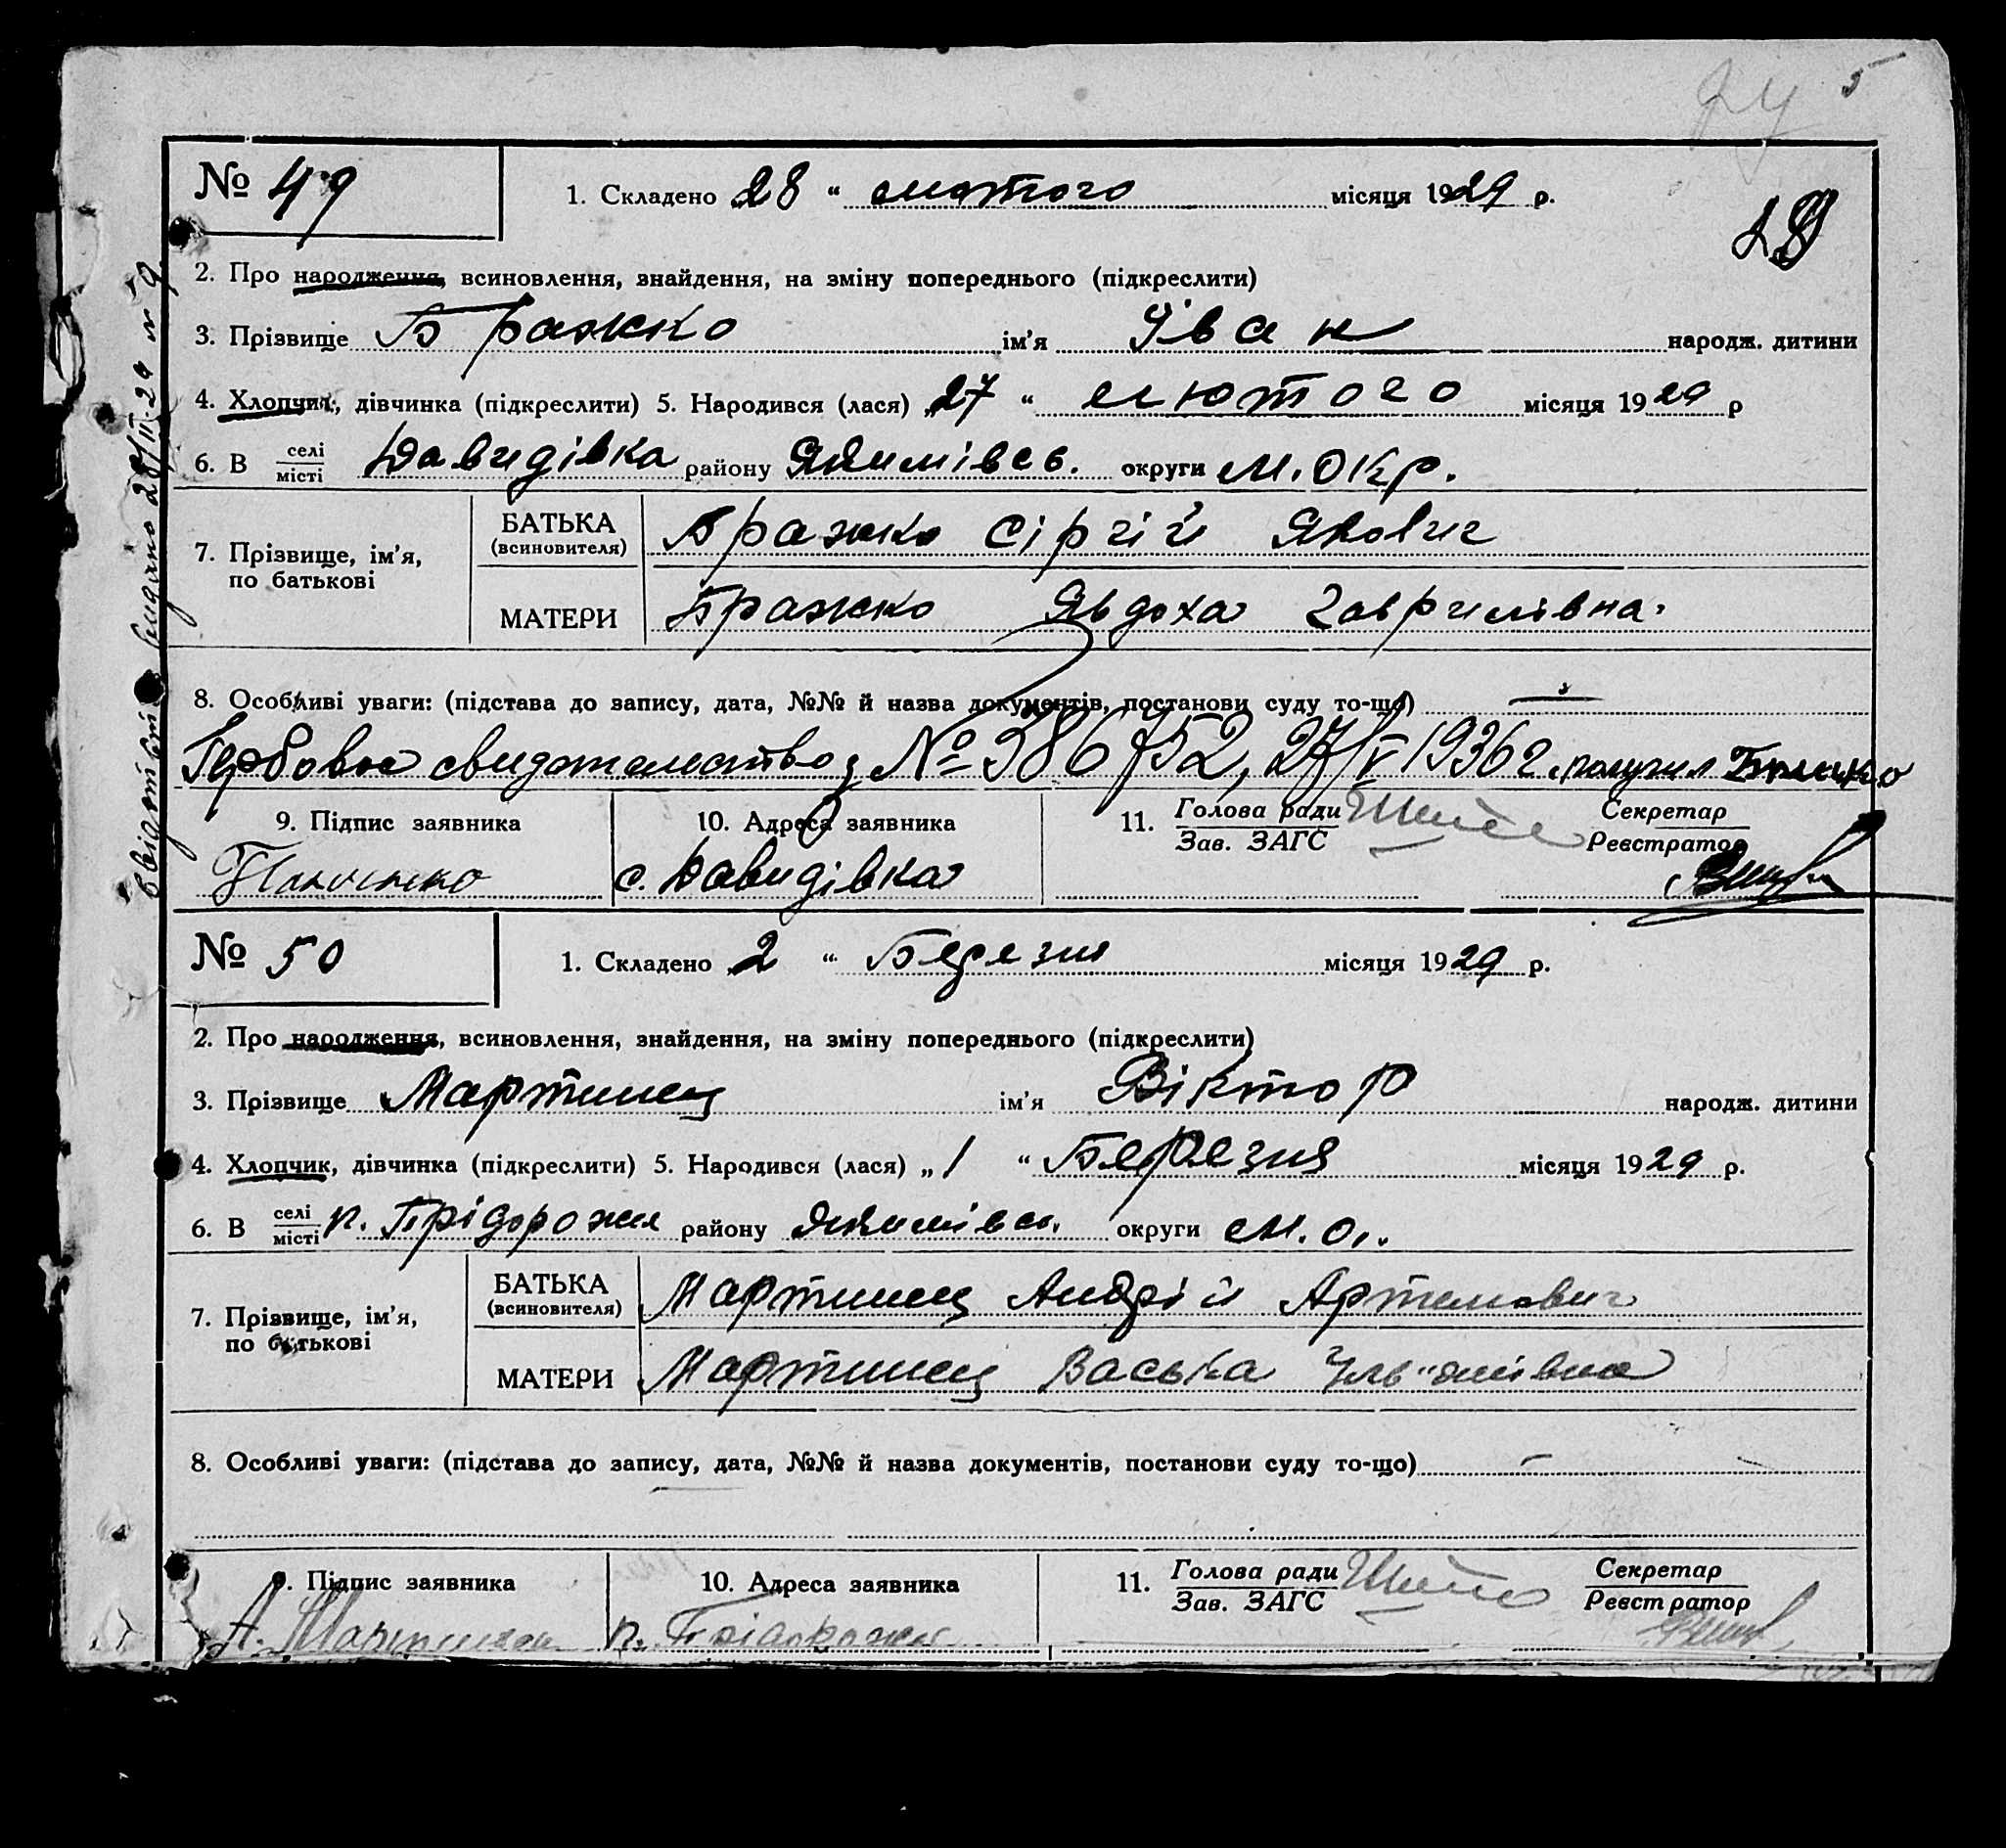 5
№ 49
1. Складено 28 “ лютого місяця 1929 р.
2. Про народження, всиновлення, знайдення, на зміну попереднього (підкреслити)
3. Прізвище Бражко ім’я Іван народж. дитини
4. Хлопчик, дівчинка (підкреслити) 5. Народився (лася) „27 “ лютого місяця 1929 р
6. В селі місті Давидівка району Якимівсь. округи М. Окр.
7. Прізвище, ім’я, по батькові
БАТЬКА (всиновителя) Бражко Сіргій Якович
МАТЕРИ Бражко Явдоха Гаврилівна.
8. Особливі уваги: (підстава до запису, дата, №№ й назва документів, постанови суду то-що) —
Гербовое свидетельство № 386752, 27/V 1936 г. получил
9. Підпис заявника
10. Адреса заявника с. Давидівка
11. Голова ради Зав. ЗАГС
Секретар Реєстратор
видано 28/II-29
№ 50
1. Складено 2 “ Березня місяця 1929 р.
2. Про народження, всиновлення, знайдення, на зміну попереднього (підкреслити)
3. Прізвище Мартинец ім’я Віктор народж. дитини
4. Хлопчик, дівчинка (підкреслити) 5. Народився (лася) „ 1 “ Березня місяця 1929 р.
6. В селі місті п. Прідорожня району Якимівсь. округи М. О.
7. Прізвище, ім’я, по батькові
БАТЬКА (всиновителя) Мартинец Андрій Артемович
МАТЕРИ Мартинец Васька
8. Особливі уваги: (підстава до запису, дата, №№ й назва документів, постанови суду то-що) —
9. Підпис заявника А. Мартинец
10. Адреса заявника п. Прідорожня
11. Голова ради Зав. ЗАГС
Секретар Реєстратор